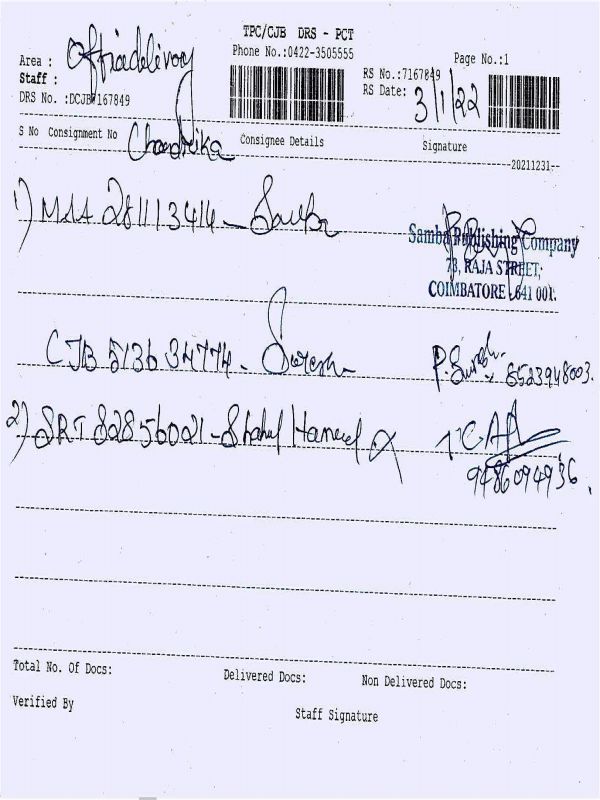 TPC/CJB DRS - PCT
Phone No.:0422-3505555
Page No.:1
Area :
Staff :
RS No.:7167849
RS Date: 3/1/22
DRS No. :DCJB7167849
S No Consignment No Consignee Details Signature
Chandrika
20211231
1) MAA 281113414 -
Samba Publishing Company
78, RAJA STREET,
COIMBATORE - 641 001.
CJB 513634774 - Suresh
P. Suresh
8523948003.
2) SRT 82856021 - Shahul Hameed
9486094936.
Total No. Of Docs: Delivered Docs: Non Delivered Docs:
Verified By Staff Signature